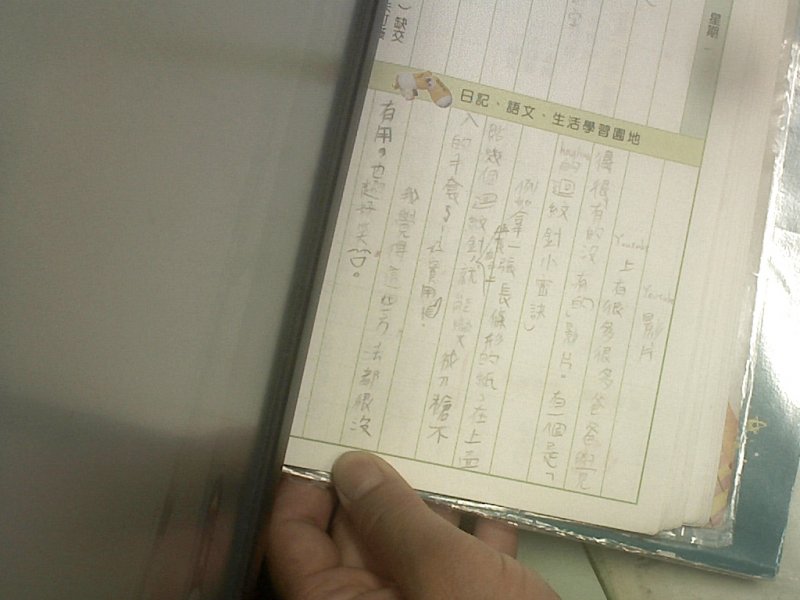 星期
日記、語文、生活學習園地
Youtube 影片
Youtube 上有很多很多爸爸
很有的沒有的影片。有一個是「
的迴紋針小密訣」
例如拿一張長條形的紙,在上面
幾個迴紋針,就能變 刀槍不
入的手套~ 實用
我覺得這些方法都很沒
有用,也超好笑。